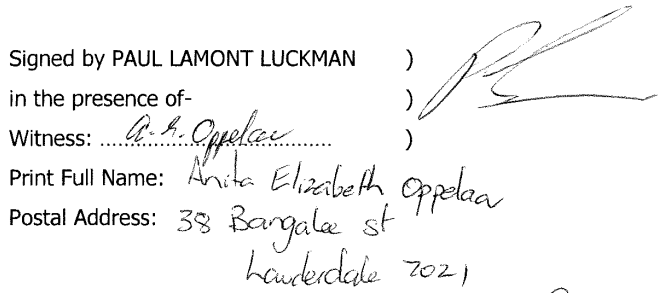 Signed by PAUL LAMONT LUCKMAN )
in the presence of- )
Witness: A. E. Oppelaar )
Print Full Name: Anita Elizabeth Oppelaar
Postal Address: 38 Bangalee st
Lauderdale 7021